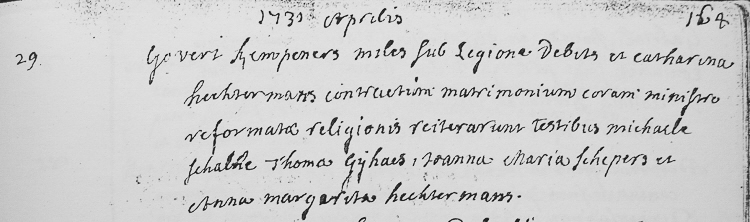 1731 Aprilis 164
29 Govert Kempeners miles sub Legione Debits et catharina
hechtermans contractum matrimonium coram ministro
reformatæ religionis reiterarunt Testibus michaele
schalke Thoma Gijhaes, Joanna Maria schepers et
Anna margareta hechtermans.